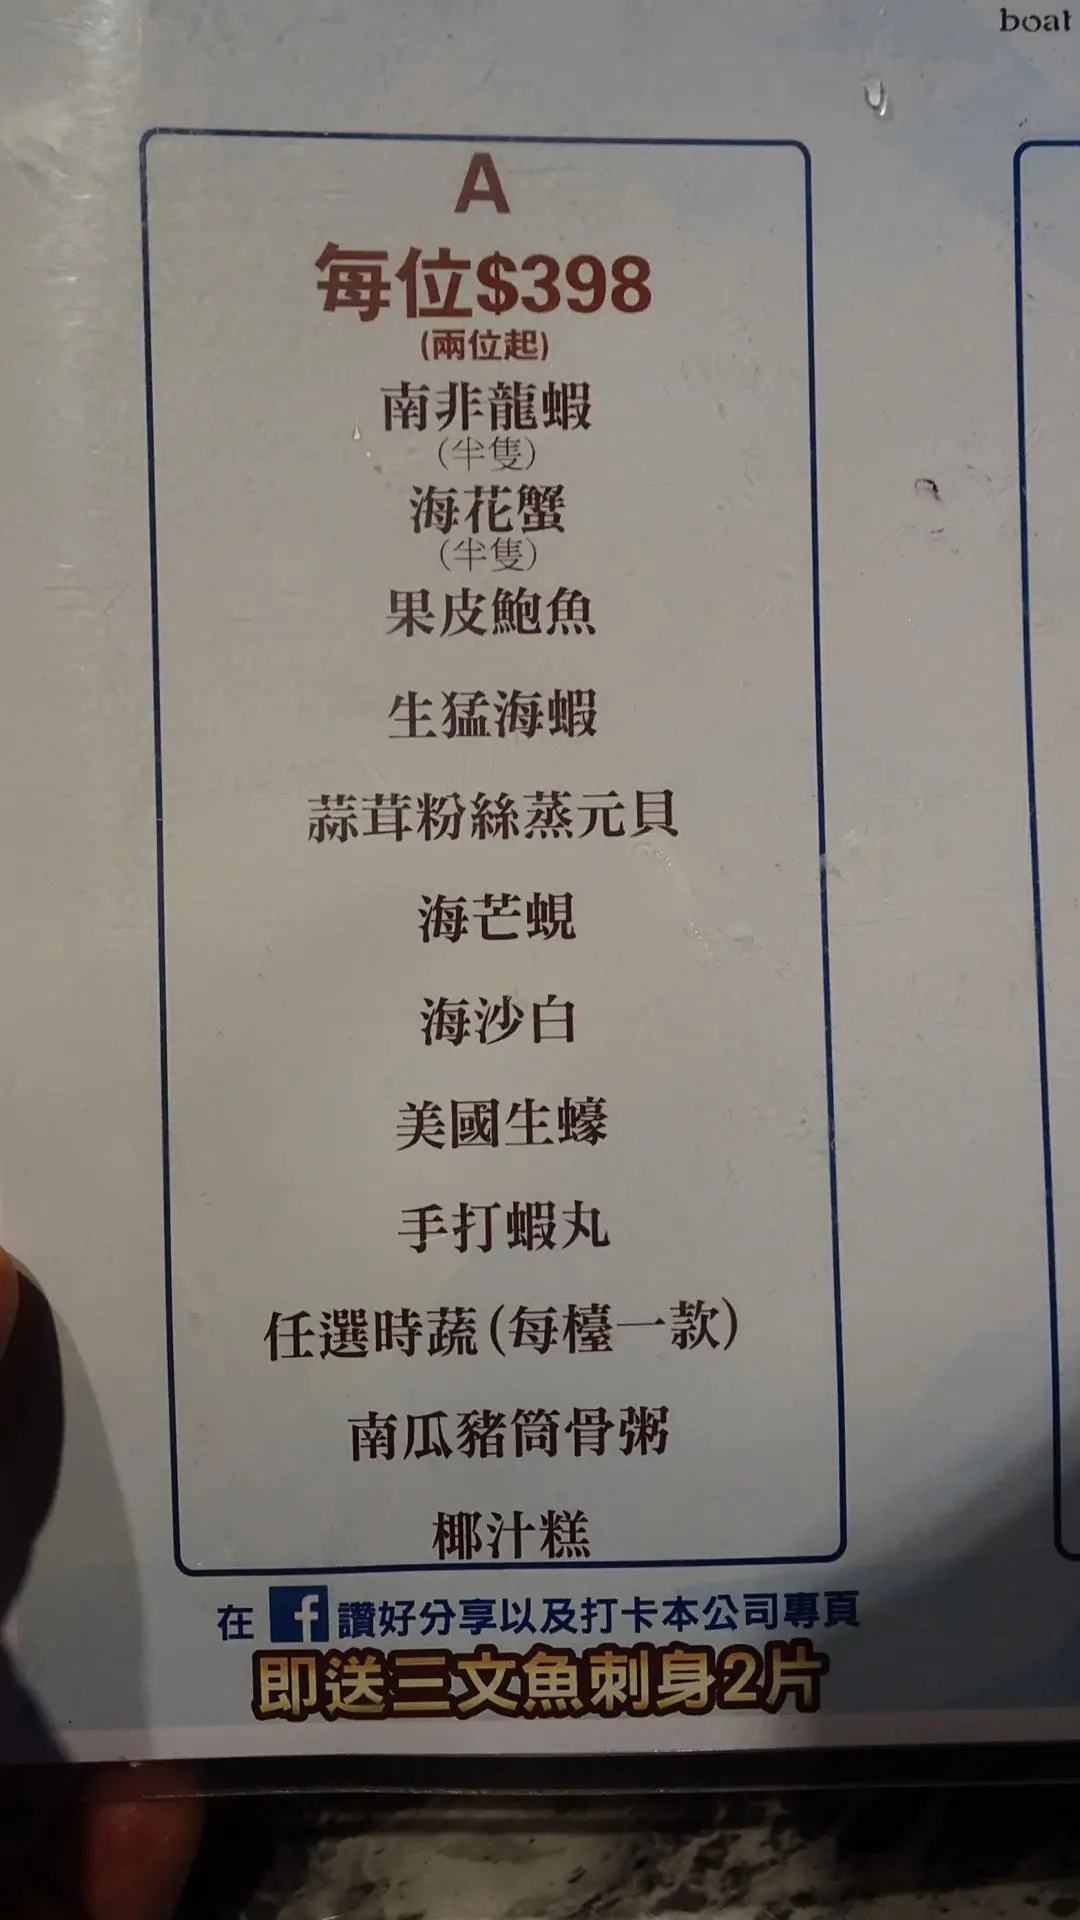 boat
A
每位$398
(兩位起)
南非龍蝦
(半隻)
海花蟹
(半隻)
果皮鮑魚
生猛海蝦
蒜茸粉絲蒸元貝
海芒蜆
海沙白
美國生蠔
手打蝦丸
任選時蔬(每檯一款)
南瓜豬筒骨粥
椰汁糕
在 f 讚好分享以及打卡本公司專頁
即送三文魚刺身2片